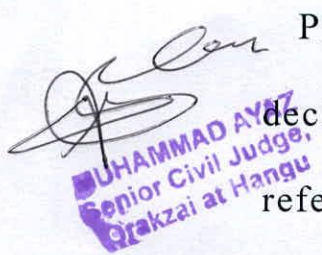 P
dec
MUHAMMAD AYAZ
Senior Civil Judge,
Orakzai at Hangu
refe